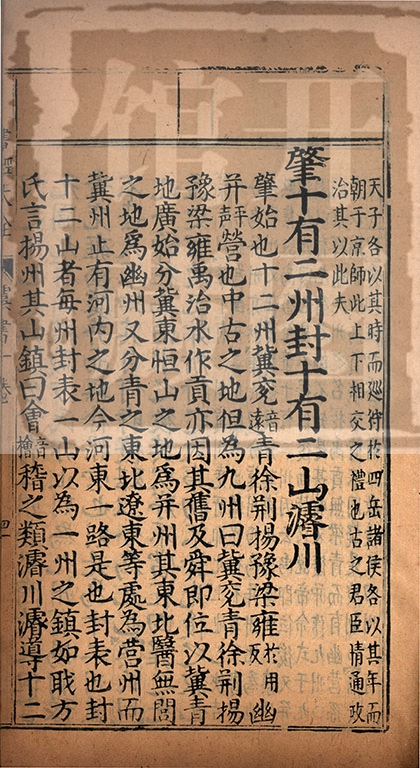 天子各以其時而巡狩於四岳諸侯各以其年而
朝于京師此上下相交之禮也古之君臣情通政
治其以此夫
肇十有二州封十有二山濬川
肇始也十二州冀兖音遠青徐荆揚豫梁雍於用反幽
并平聲營也中古之地但為九州曰冀兖青徐荆揚
豫梁雍禹治水作貢亦因其舊及舜即位以冀青
地廣始分冀東恒山之地爲并州其東北醫無閭
之地爲幽州又分青之東北遼東等處為營州而
冀州止有河内之地今河東一路是也封表也封
十二山者每州封表一山以為一州之鎮如職方
氏言揚州其山鎮曰會音檜稽之類濬川濬導十二